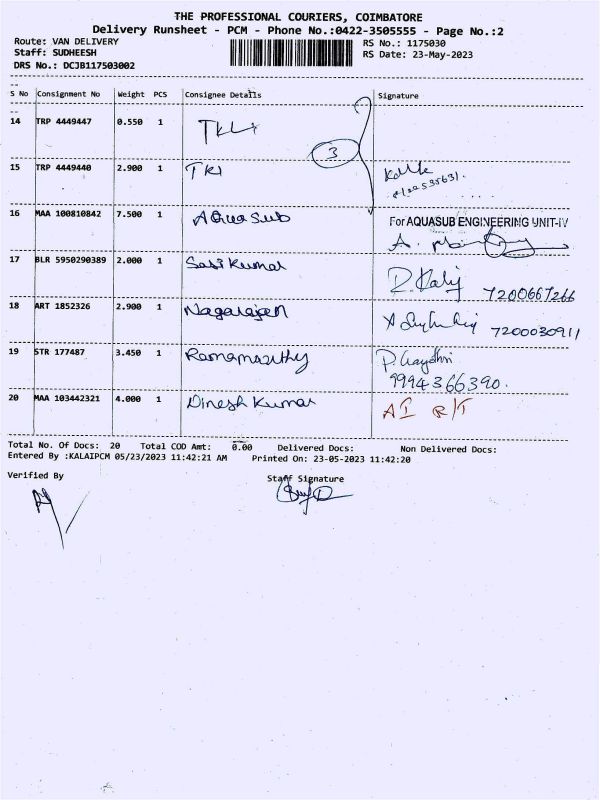 THE PROFESSIONAL COURIERS, COIMBATORE
Delivery Runsheet - PCM - Phone No.:0422-3505555 - Page No.:2
Route: VAN DELIVERY RS No.: 1175030
Staff: SUDHEESH RS Date: 23-May-2023
DRS No.: DCJB117503002
S No Consignment No Weight PCS Consignee Details Signature
14 TRP 4449447 0.550 1
3
15 TRP 4449440 2.900 1
16 MAA 100810842 7.500 1 Aquasub For AQUASUB ENGINEERING UNIT-IV
17 BLR 5950290389 2.000 1 SasiKumar
7200667266
18 ART 1852326 2.900 1 Nagarajan 7200030911
19 STR 177487 3.450 1 Ramamoorthy P. Gayathri
9994366390.
20 MAA 103442321 4.000 1 Dinesh Kumar
Total No. Of Docs: 20 Total COD Amt: 0.00 Delivered Docs: Non Delivered Docs:
Entered By :KALAIPCM 05/23/2023 11:42:21 AM Printed On: 23-05-2023 11:42:20
Verified By Staff Signature